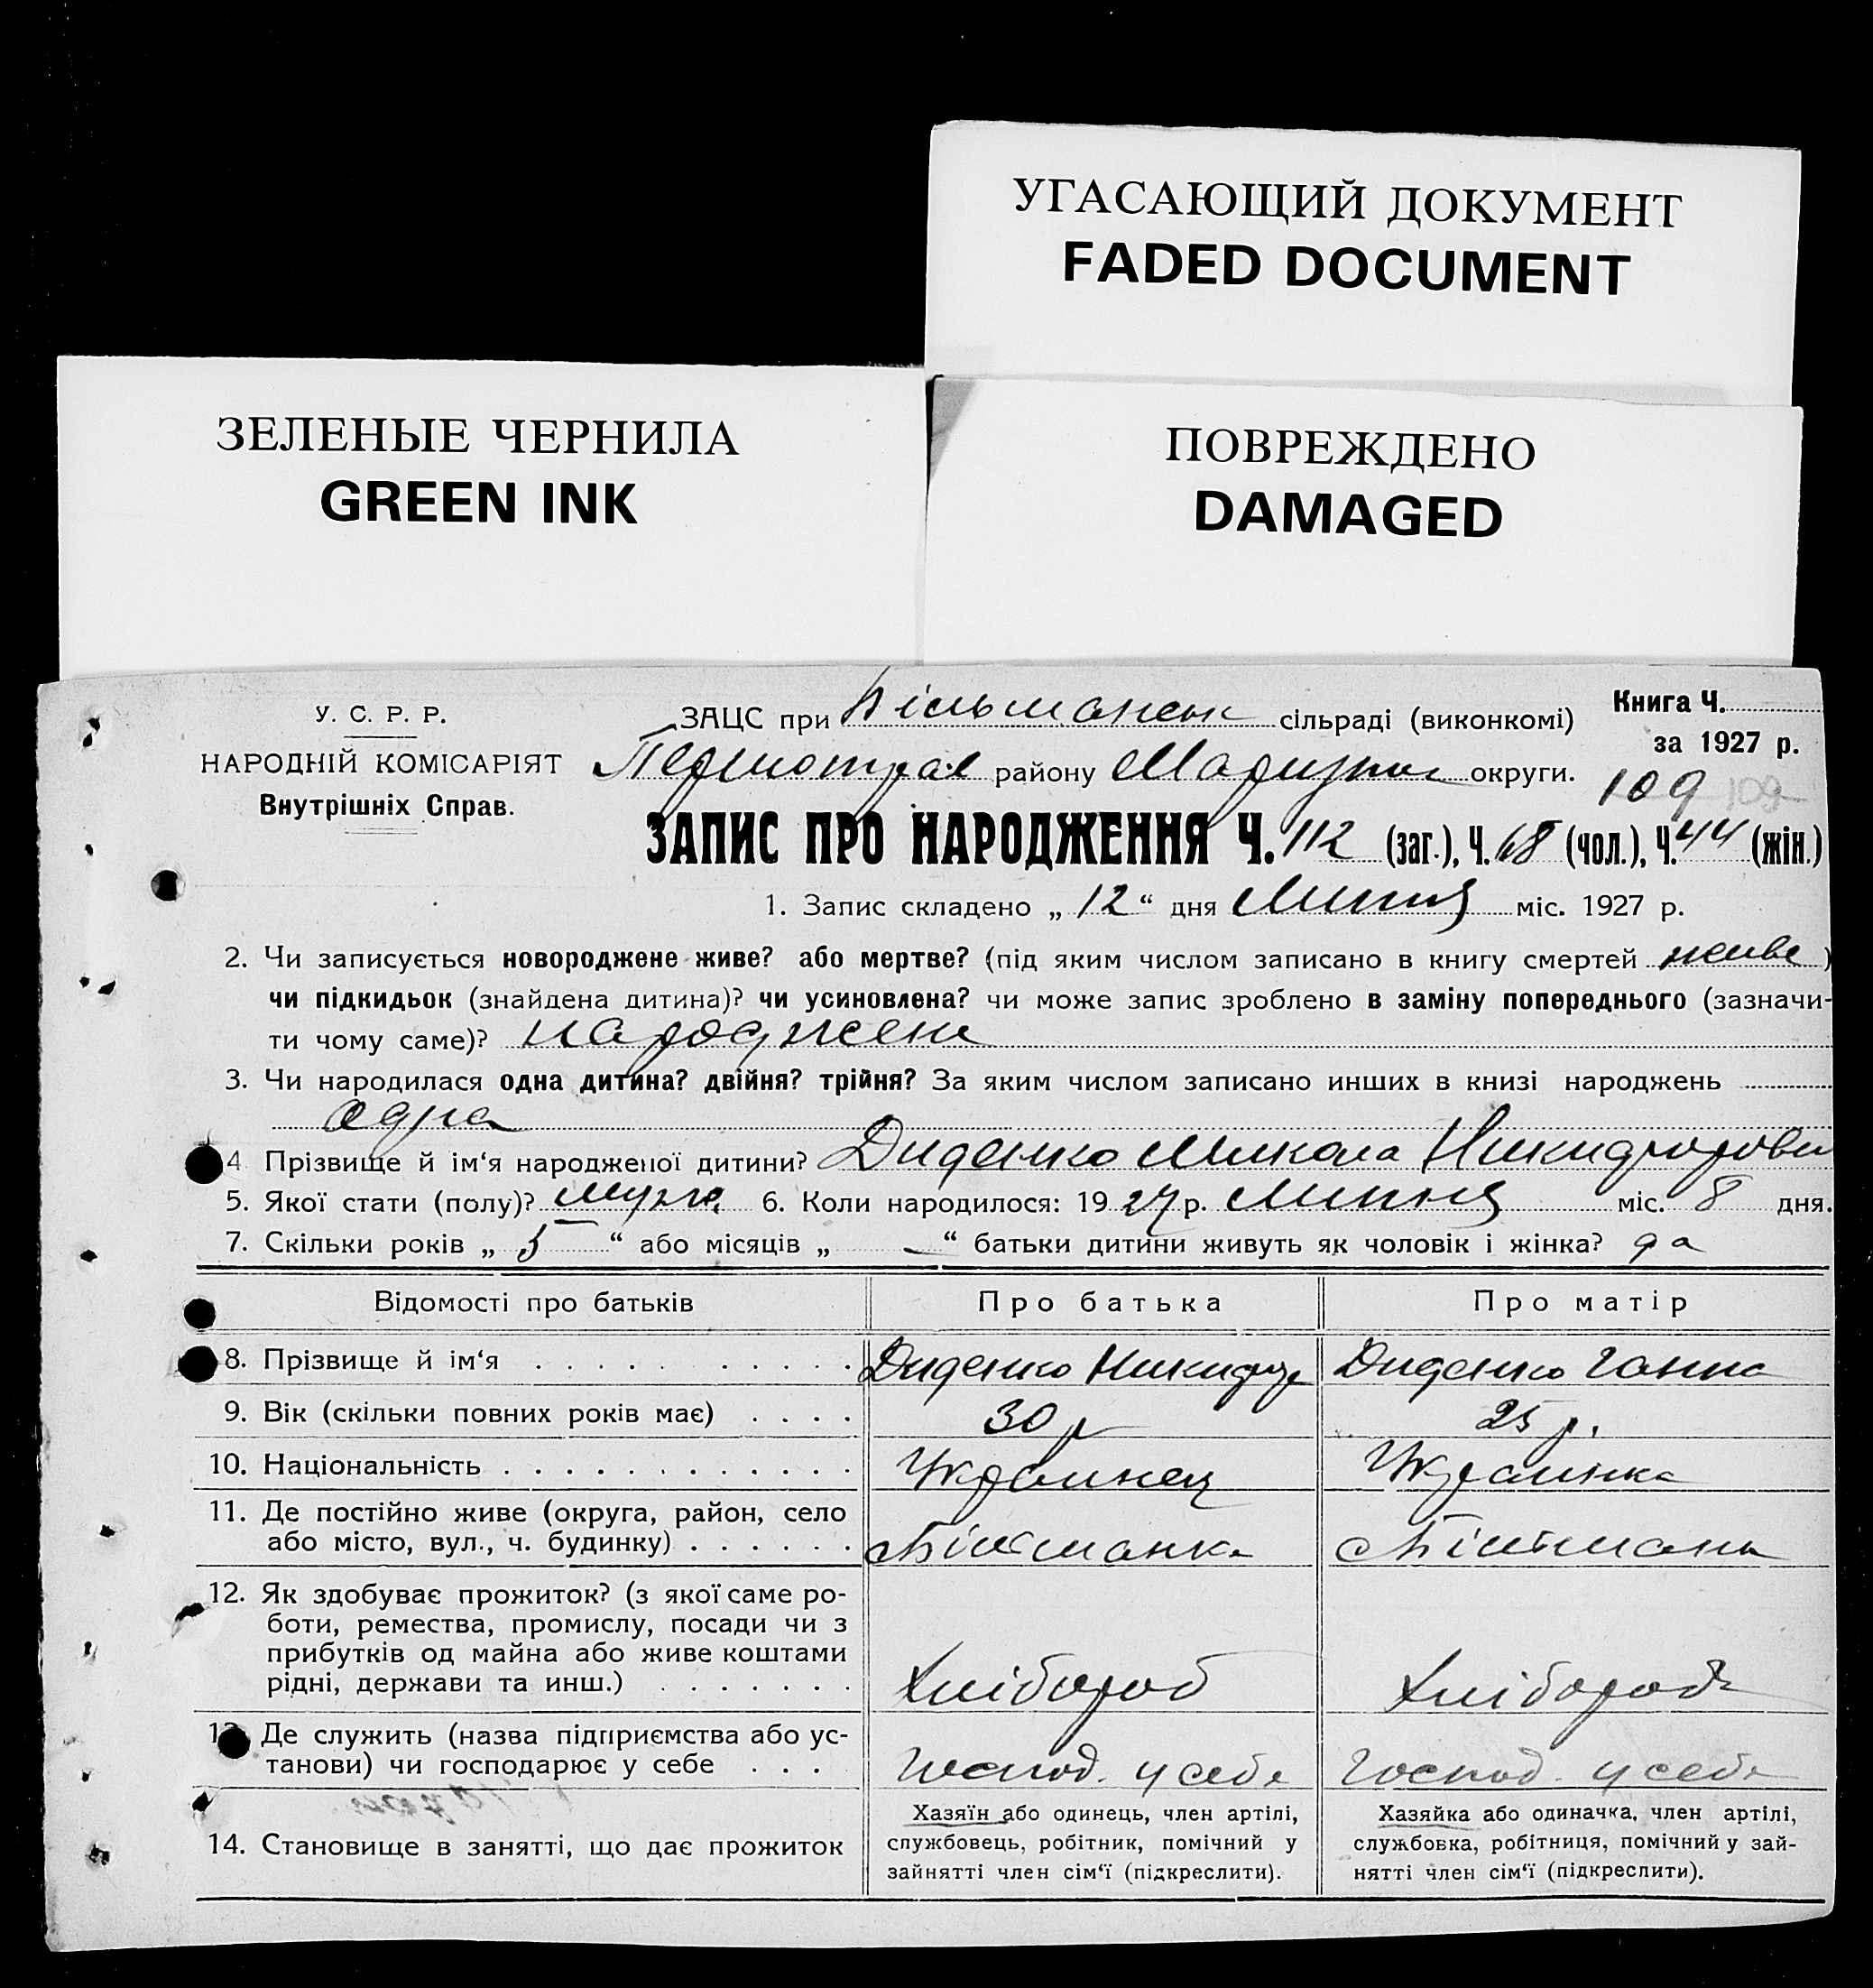 УГАСАЮЩИЙ ДОКУМЕНТ
FADED DOCUMENT
ЗЕЛЕНЫЕ ЧЕРНИЛА
GREEN INK
ПОВРЕЖДЕНО
DAMAGED
У. С. Р. Р.
НАРОДНІЙ КОМІСАРІЯТ
Внутрішніх Справ.
ЗАЦС при Більманськ сільраді (виконкомі)
Книга Ч.
за 1927 р.
району округи.
109 109
ЗАПИС ПРО НАРОДЖЕННЯ Ч. 112 (заг.), Ч. 68 (чол.), Ч. 44 (жін.)
1. Запис складено „ 12 “ дня Липня міс. 1927 р.
2. Чи записується новороджене живе? або мертве? (під яким числом записано в книгу смертей живе )
чи підкидьок (знайдена дитина)? чи усиновлена? чи може запис зроблено в заміну попереднього (зазначи-
ти чому саме)? народжене
3. Чи народилася одна дитина? двійня? трійня? За яким числом записано инших в книзі народжень
одна
4 Прізвище й ім‘я народженої дитини? Диденко Микола Никифорови
5. Якої стати (полу)? муж. 6. Коли народилося: 19 27 р. Липня міс. 8 дня.
7. Скільки років „ 5 “ або місяців „ — “ батьки дитини живуть як чоловік і жінка? да
Відомості про батьків Про батька Про матір
8. Прізвище й ім‘я Диденко Никифор Диденко Ганна
9. Вік (скільки повних років має) 30 р 25 р.
10. Національність Украинец Украинка
11. Де постійно живе (округа, район, село
або місто, вул., ч. будинку) Більманка Більманк
12. Як здобуває прожиток? (з якої саме ро-
боти, ремества, промислу, посади чи з
прибутків од майна або живе коштами
рідні, держави та инш.) Хлібороб Хлібороб
13. Де служить (назва підприємства або ус-
танови) чи господарює у себе Господ. у себе Господ. у себе
14. Становище в занятті, що дає прожиток
Хазяїн або одинець, член артілі,
службовець, робітник, помічний у
зайнятті член сім‘ї (підкреслити).
Хазяйка або одиначка, член артілі,
службовка, робітниця, помічний у зай-
нятті член сім‘ї (підкреслити).